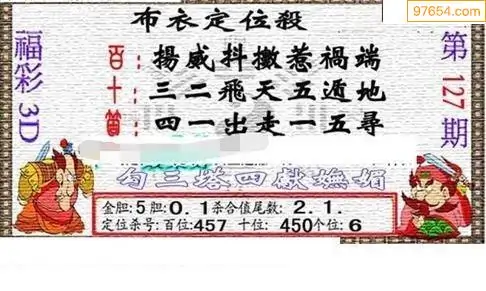 97654.com
布衣定位殺
福彩3D
第127期
百:揚威抖擻惹禍端
十:三二飛天五遁地
個:四一出走一五尋
勾三塔四獻嫵媚
金胆:5胆:0.1杀合值尾数:2.1.
定位杀号:百位:457 十位:450个位:6